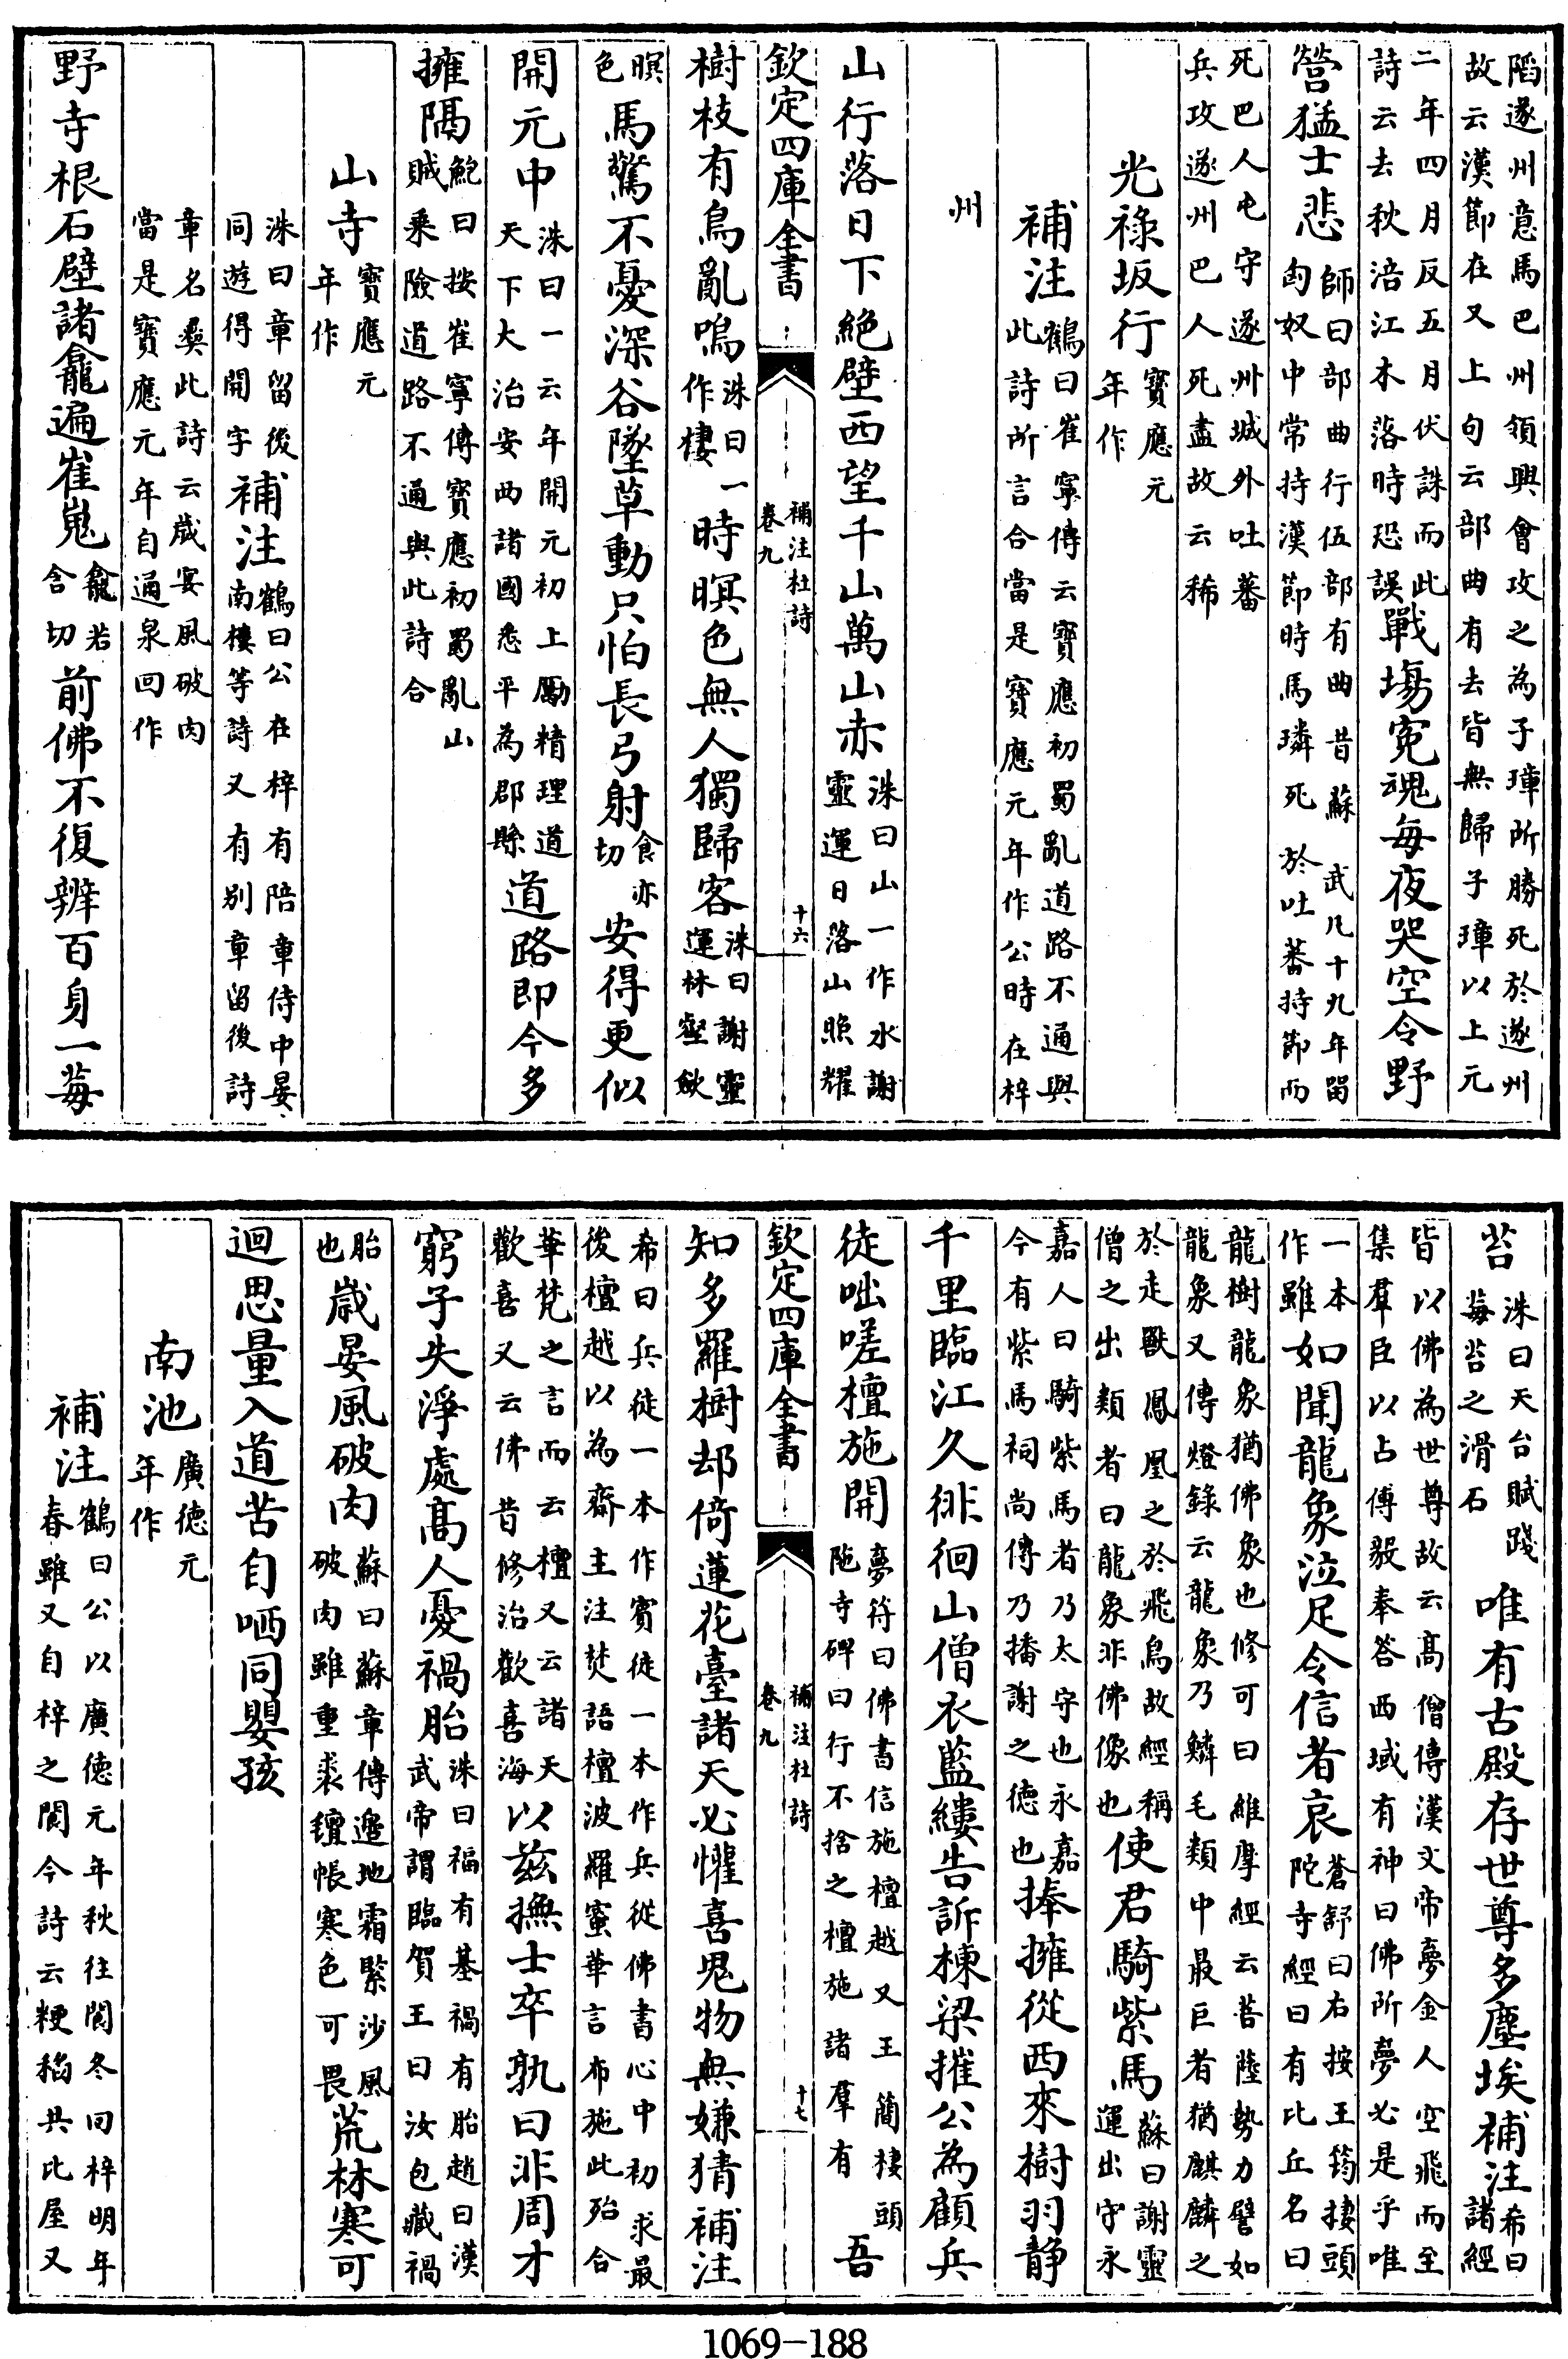 陷遂州意馬巴州領興會攻之為子璋所勝死於遂州
故云漢節在又上句云部曲有去皆無歸子璋以上元
二年四月反五月伏誅而此
詩云去秋涪江木落時恐誤戰塲寃魂每夜哭空令野
營猛士悲師曰部曲行伍部有曲昔蘇武凡十九年留
匈奴中常持漢節時馬璘死於吐蕃持節而
死巴人屯守遂州城外吐蕃
兵攻遂州巴人死盡故云稀
光祿坂行寶應元
年作
補注鶴曰崔寧傳云寶應初蜀亂道路不通與
此詩所言合當是寶應元年作公時在梓
州
山行落日下絶壁西望千山萬山赤洙曰山一作水謝
靈運日落山照耀
欽定四庫全書
補注杜詩
卷九
十六
樹枝有鳥亂鳴洙曰一
作棲時暝色無人獨歸客洙曰謝靈
運林壑斂
暝
色馬驚不憂深谷墜草動只怕長弓射食亦
切安得更似
開元中洙曰一云年開元初上勵精理道
天下大治安西諸國悉平為郡縣道路即今多
擁隔鮑曰按崔寧傳寶應初蜀亂山
賊乗險道路不通與此詩合
山寺寶應元
年作
洙曰章留後
同遊得開字補注鶴曰公在梓有陪章侍中晏
南樓等詩又有别章留後詩
章名彞此詩云歲宴風破肉
當是寶應元年自通泉回作
野寺根石壁諸龕遍崔嵬龕若
含切前佛不復辨百身一莓
苔洙曰天台賦踐
莓苔之滑石唯有古殿存世尊多塵埃補注希曰
諸經
皆以佛為世尊故云髙僧傳漢文帝夢金人空飛而至
集羣臣以占傅毅奉答西域有神曰佛所夢必是乎唯
一本
作雖如聞龍象泣足令信者哀蒼舒曰右按王筠棲頭
陀寺經曰有比丘名曰
龍樹龍象猶佛象也修可曰維摩經云菩薩勢力譬如
龍象又傳燈錄云龍象乃鱗毛類中最巨者猶麒麟之
於走獸鳳凰之於飛鳥故經稱
僧之出類者曰龍象非佛像也使君騎紫馬蘇曰謝靈
運出守永
嘉人曰騎紫馬者乃太守也永嘉
今有紫馬祠尚傳乃播謝之德也捧擁從西來樹羽静
千里臨江久徘徊山僧衣藍縷告訴棟梁摧公為顧兵
徒咄嗟檀施開夢符曰佛書信施檀越又王簡棲頭
陁寺碑曰行不捨之檀施諸羣有吾
欽定四庫全書
補注杜詩
卷九
十七
知多羅樹却倚蓮花臺諸天必懽喜鬼物無嫌猜補注
希曰兵徒一本作賓徒一本作兵從佛書心中初求最
後檀越以為齋主注焚語檀波羅蜜華言布施此殆合
華梵之言而云檀又云諸天
歡喜又云佛昔修治歡喜海以兹撫士卒孰曰非周才
窮子失淨處髙人憂禍胎洙曰福有基禍有胎趙曰漢
武帝謂臨賀王曰汝包藏禍
胎
也歲晏風破肉蘇曰蘇章傳邉地霜緊沙風
破肉雖重裘氊帳寒色可畏荒林寒可
迴思量入道苦自哂同嬰孩
南池廣德元
年作
補注鶴曰公以廣德元年秋往閬冬回梓明年
春雖又自梓之閬今詩云粳稻共比屋又
1069-188